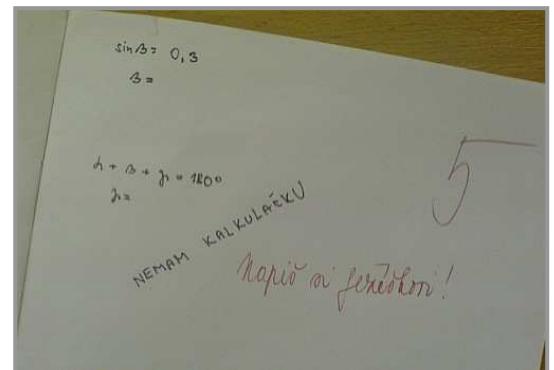 sin β = 0,3
β =
α + β + γ = 180°
γ =
NEMAM KALKULAČKU
5
Napiš si Ježíškovi!